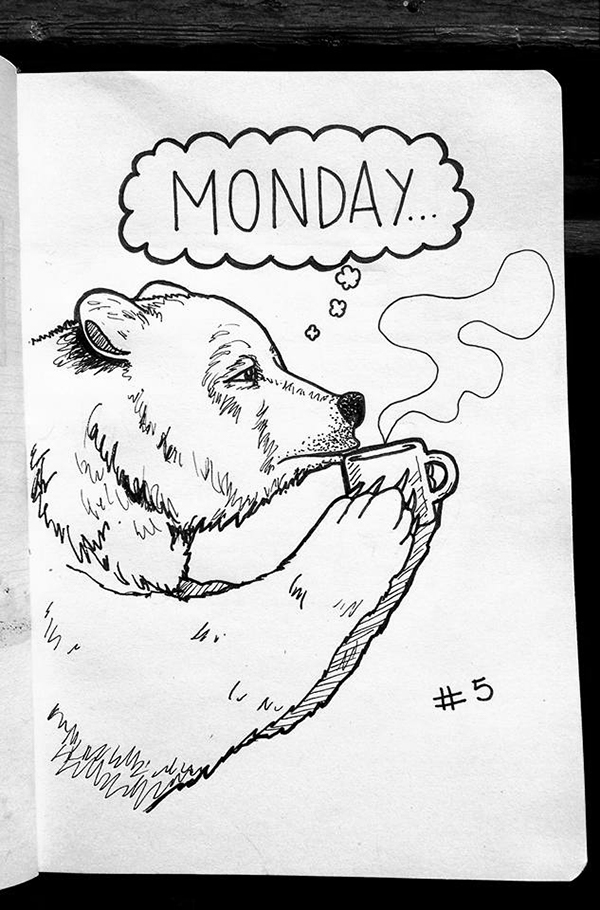 MONDAY...
#5